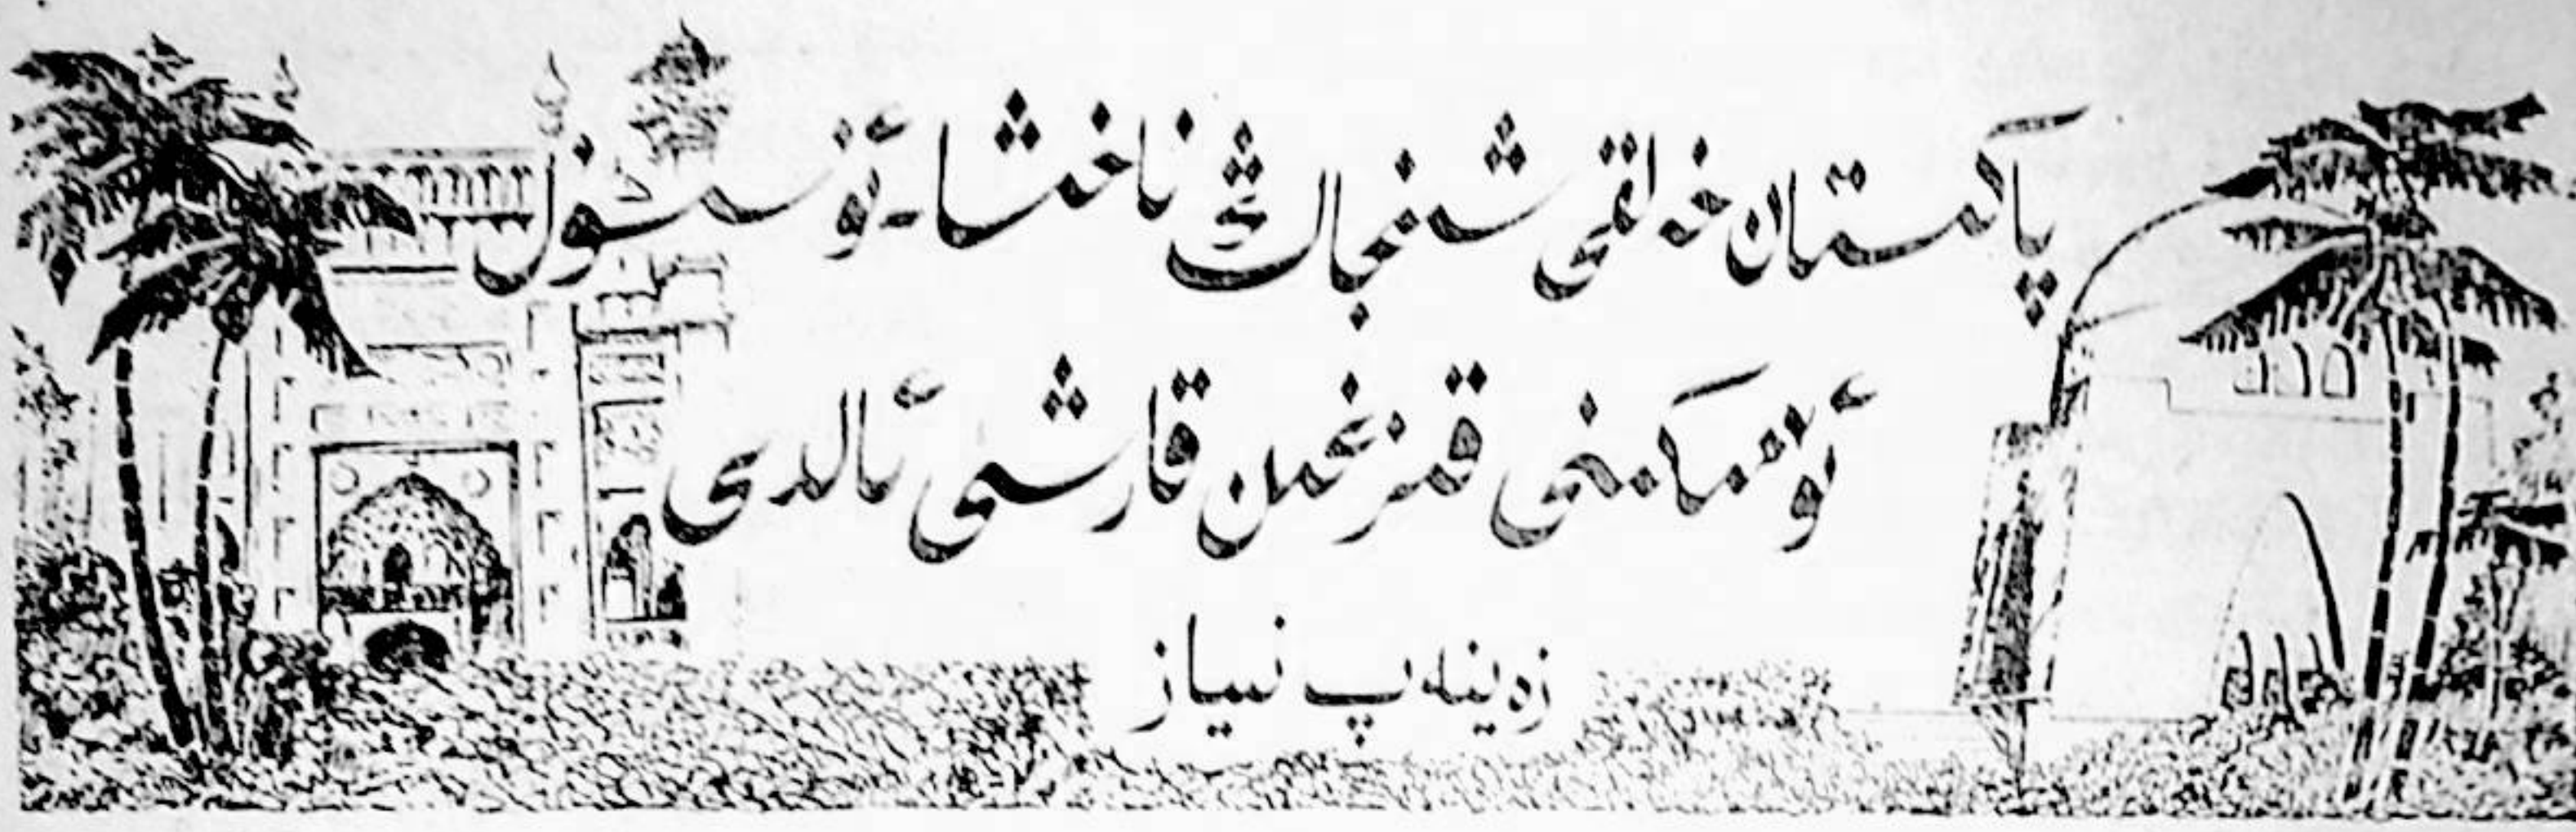 پاكىستان خەلقى شىنجاڭ ناخشا - ئۇسسۇل
ئۆمىكىنى قىزغىن قارشى ئالدى
زەينەپ نىياز